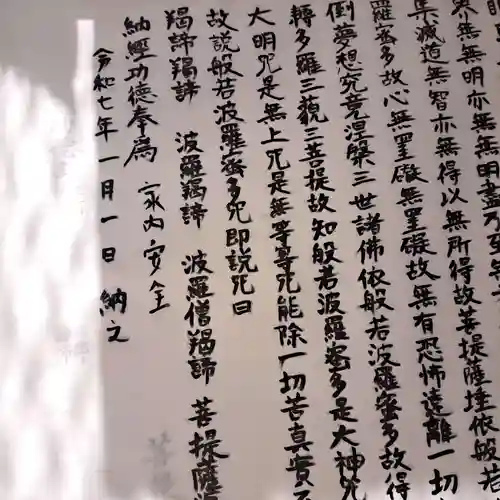 界無無明亦無無明盡乃至無
集滅道無智亦無得以無所得故菩提薩埵依般若
羅蜜多故心無罣礙無罣礙故無有恐怖遠離一切
倒夢想究竟涅槃三世諸佛依般若波羅蜜多故得
耨多羅三藐三菩提故知般若波羅蜜多是大神咒
大明咒是無上咒是無等等咒能除一切苦真實不
故説般若波羅蜜多咒即説咒曰
羯諦羯諦 波羅羯諦 波羅僧羯諦 菩提薩
納經功德奉為 家内安全
令和七年一月一日 納之